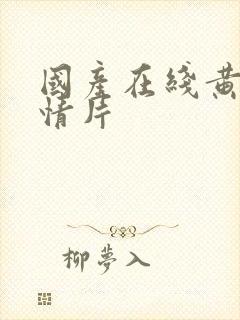 國產在綫黃
情片
柳夢入